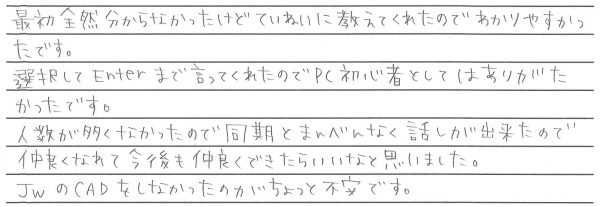 最初全然分からなかったけどていねいに教えてくれたのでわかりやすかっ
たです。
選択してEnterまで言ってくれたのでPC初心者としてはありがた
かったです。
人数が多くなかったので同期とまんべんなく話しが出来たので
仲良くなれて今後も仲良くできたらいいなと思いました。
JWのCADをしなかったのがちょっと不安です。